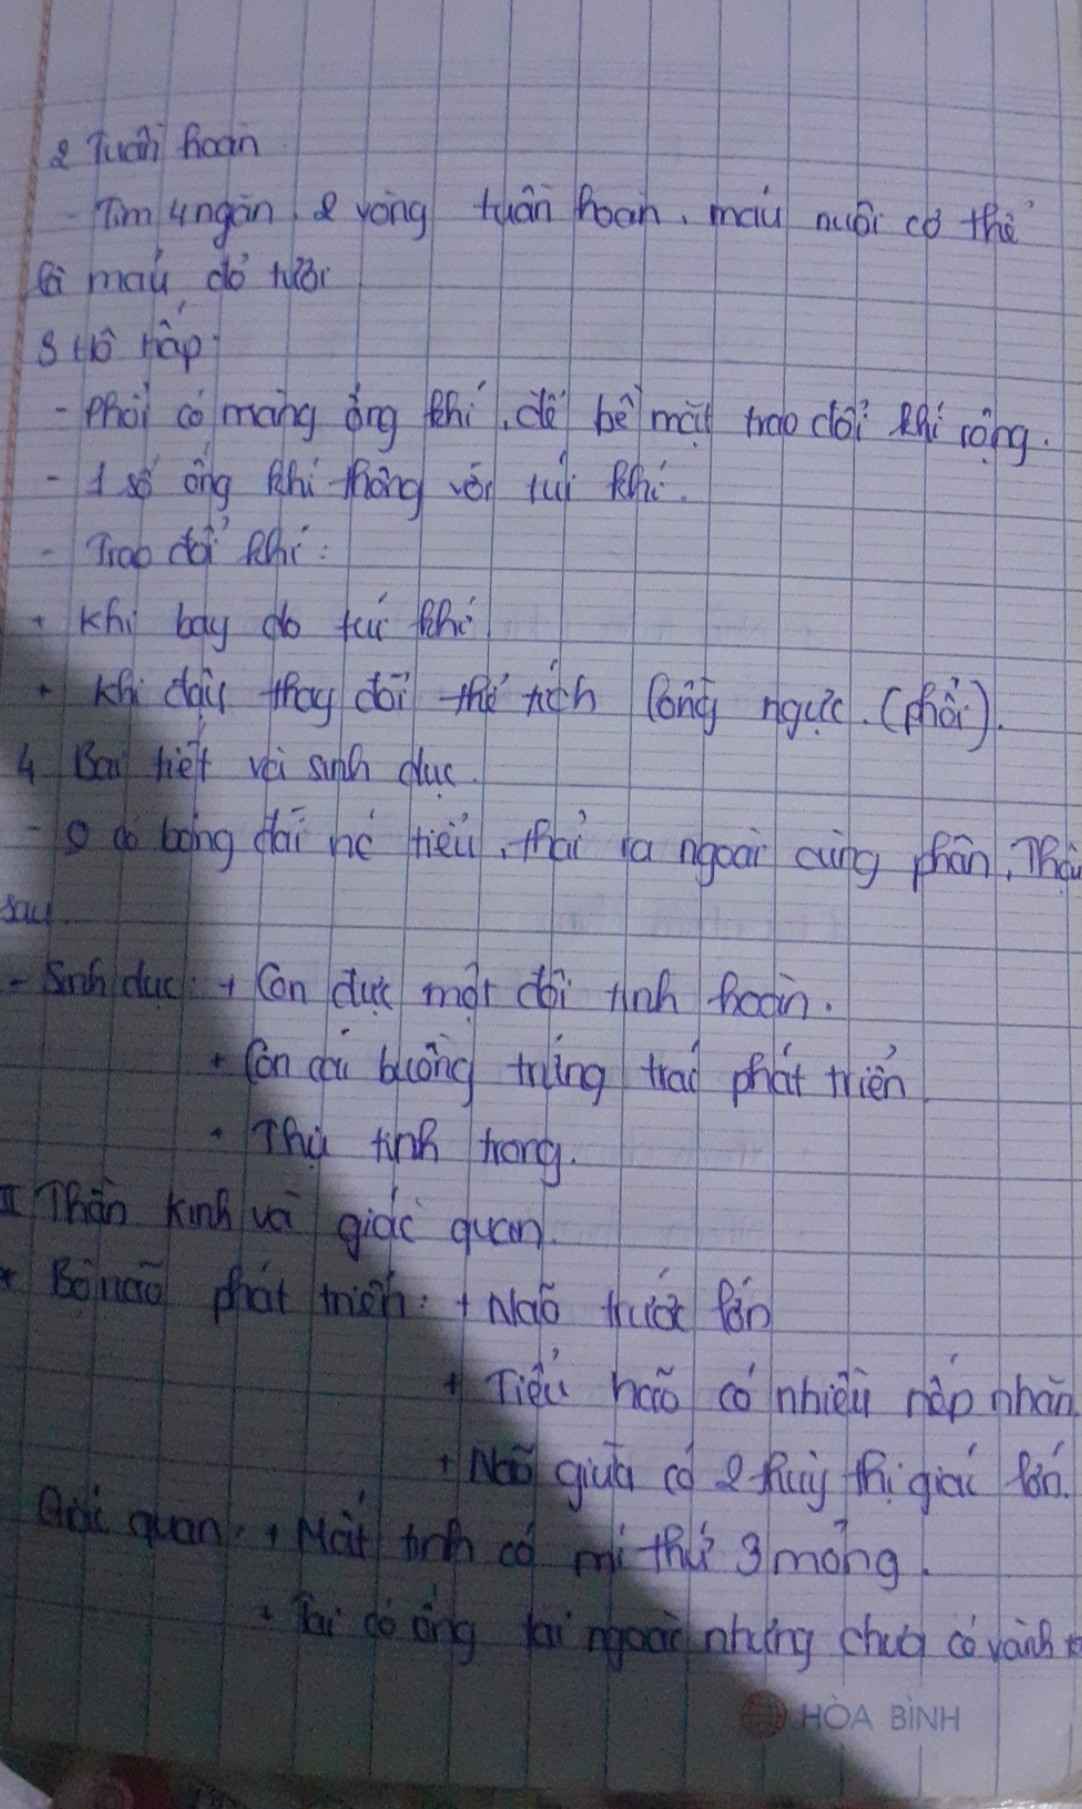 2 Tuần hoàn
- Tim 4 ngăn, 2 vòng tuần hoàn, máu nuôi cơ thể
là máu đỏ tươi
3 Hô hấp
- Phổi có mang ống khí, để bề mặt trao đổi khí rộng.
- 1 số ống khí thông với túi khí.
- Trao đổi khí:
+ Khi bay do túi khí
+ Khi đậu thay đổi thể tích lồng ngực. (phổi).
4 Bài tiết và sinh dục.
- 0 có bóng đái nc tiểu, thải ra ngoài cùng phân, Thận
sau
- Sinh dục: + Con đực một đôi tinh hoàn.
+ Con cái buồng trứng trái phát triển
+ Thụ tinh trong.
II Thần kinh và giác quan
* Bộ não phát triển: + Não trước lớn
+ Tiểu não có nhiều nếp nhăn
+ Não giữa có 2 thùy thị giác lớn.
Giác quan: + Mắt tinh có mí thứ 3 mỏng.
+ Tai có ống tai ngoài nhưng chưa có vành
HÒA BÌNH